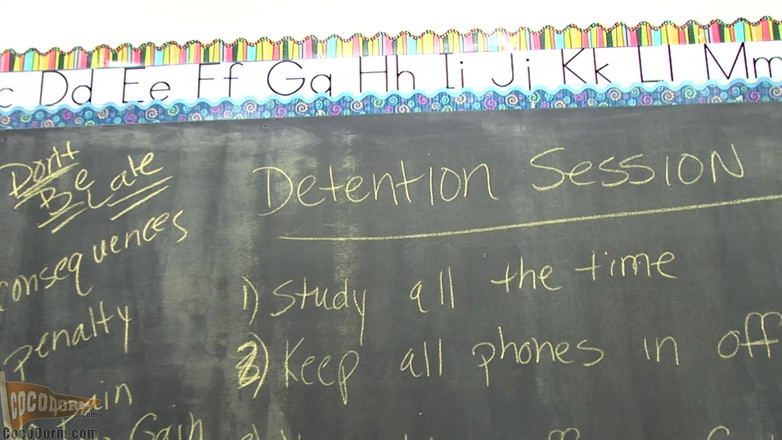 Dd Ee Ff Gg Hh Ii Jj Kk Ll Mm
Don't
Be Late
Consequences
penalty
Detention Session
1) Study all the time
2) Keep all phones in off
Gain
COCODORM.com
www.CocoDorm.com